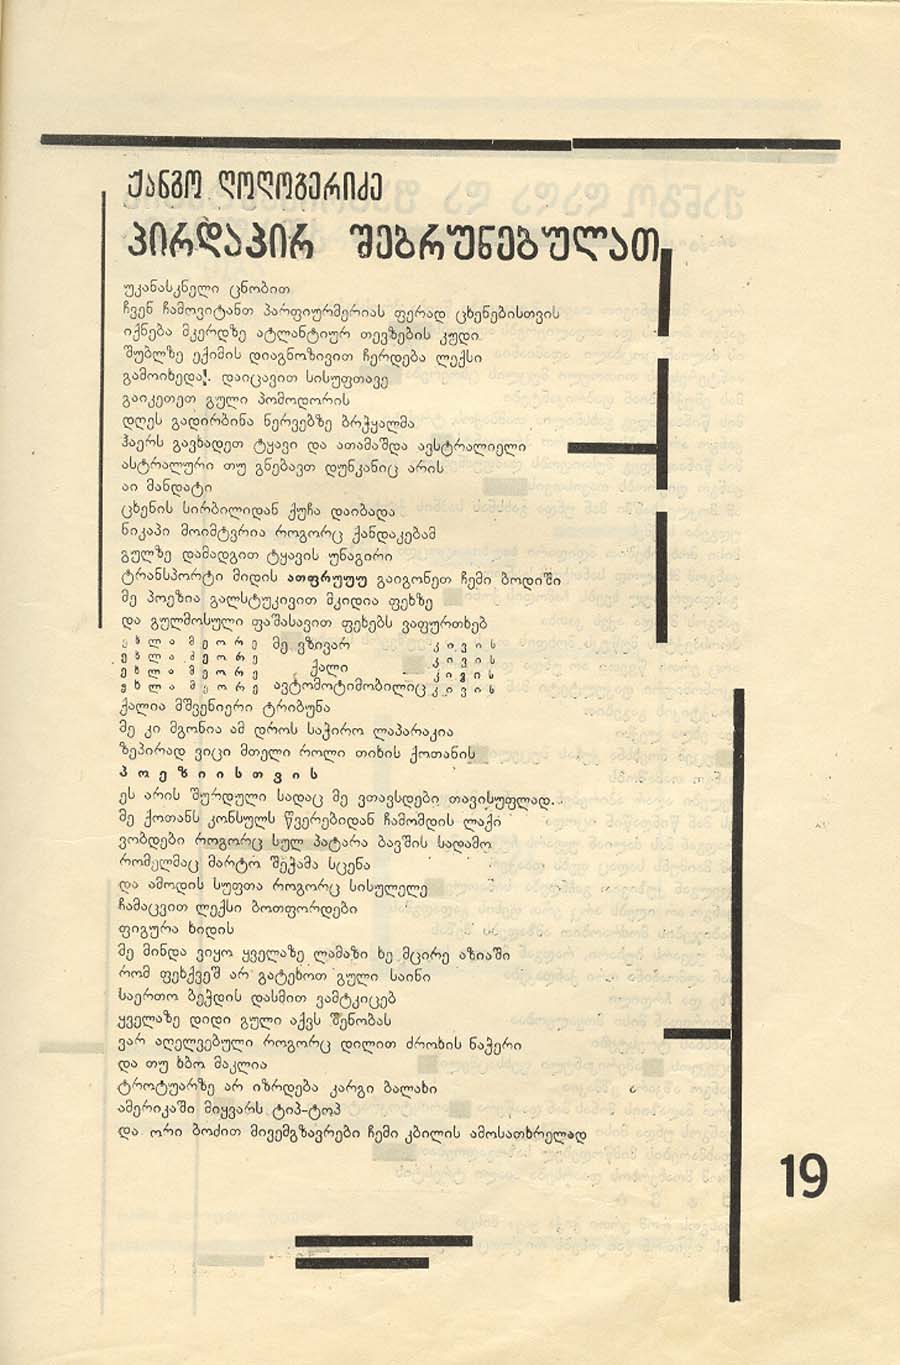 ქანგო ღოღობერიძე
პირდაპირ შებრუნებულათ
უკანასკნელი ცნობით
ჩვენ ჩამოვიტანთ პარფიურმერიას ფერად ცხენებისთვის
იქნება მკერდზე ატლანტიურ თევზების კუდი
შუბლზე ექიმის დიაგნოზივით ჩერდება ლექსი
გამოიხედა!. დაიცავით სისუფთავე
გაიკეთეთ გული პომოდორის
დღეს გადირბინა ნერვებზე ბრჭყალმა
ჰაერს გავხადეთ ტყავი და ათამაშდა ავსტრალიელი
ასტრალური თუ გნებავთ დუნკანიც არის
აი მანდატი
ცხენის სირბილიდან ქუჩა დაიბადა
ნიკაპი მოიმტვრია როგორც ქანდაკებამ
გულზე დამადგით ტყავის უნაგირი
ტრანსპორტი მიდის ათფრუუუ გაიგონეთ ჩემი ბოდიში
მე პოეზია გალსტუკივით მკიდია ფეხზე
და გულმოსული ფაშასავით ფეხებს ვაფურთხებ
ე ხ ლ ა მ ე ო რ ე მე ვზივარ კ ი ვ ი ს
ე ხ ლ ა მ ე ო რ ე კ ი ვ ი ს
ე ხ ლ ა მ ე ო რ ე ქალი კ ი ვ ი ს
ე ხ ლ ა მ ე ო რ ე ავტომოტიმობილიც კ ი ვ ი ს
ქალია მშვენიერი ტრიბუნა
მე კი მგონია ამ დროს საჭირო ლაპარაკია
ზეპირად ვიცი მთელი როლი თიხის ქოთანის
პ ო ე ზ ი ი ს თ ვ ი ს
ეს არის შურდული სადაც მე ვთავსდები თავისუფლად.
მე ქოთანს კონსულს წვერებიდან ჩამომდის ლაქი
ვობდები როგორც სულ პატარა ბავშის სადამო
რომელმაც მარტო შეჭამა სცენა
და ამოდის სუფთა როგორც სისულელე
ჩამაცვით ლექსი ბოთფორდები
ფიგურა ხიდის
მე მინდა ვიყო ყველაზე ლამაზი ხე მცირე აზიაში
რომ ფეხქვეშ არ გატეხოთ გული საინი
საერთო ბეჭდის დასმით ვამტკიცებ
ყველაზე დიდი გული აქვს შენობას
ვარ აღელვებული როგორც დილით ძროხის ნაჭერი
და თუ ხბო მაკლია
ტროტუარზე არ იზრდება კარგი ბალახი
ამერიკაში მიყვარს ტიპ-ტოპ
და ორი ბოძით მივემგზავრები ჩემი კბილის ამოსათხრელად
19